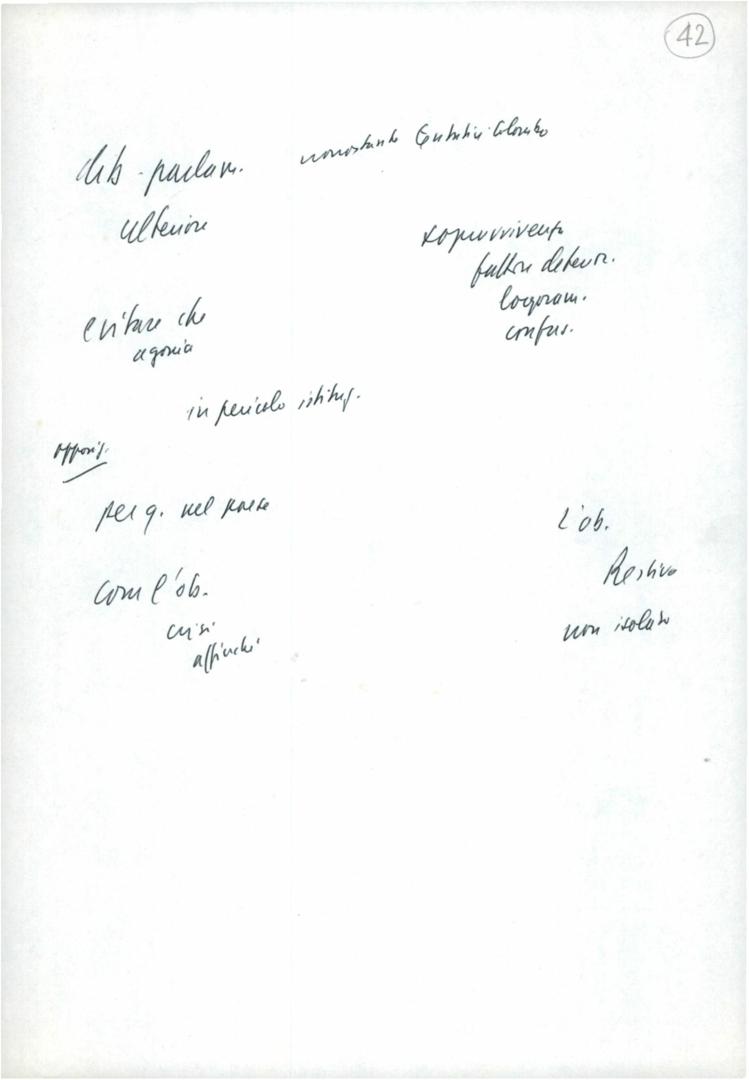 42
dib. parlam. nonostante Colombo
ulteriore
sopravvivenza
fattore deterior.
logoram.
confus.
evitare che
agonia
in pericolo istituz.
opposiz.
per q. nel paese
L'ob.
Restivo
non isolato
Con l'ob.
crisi
affinché